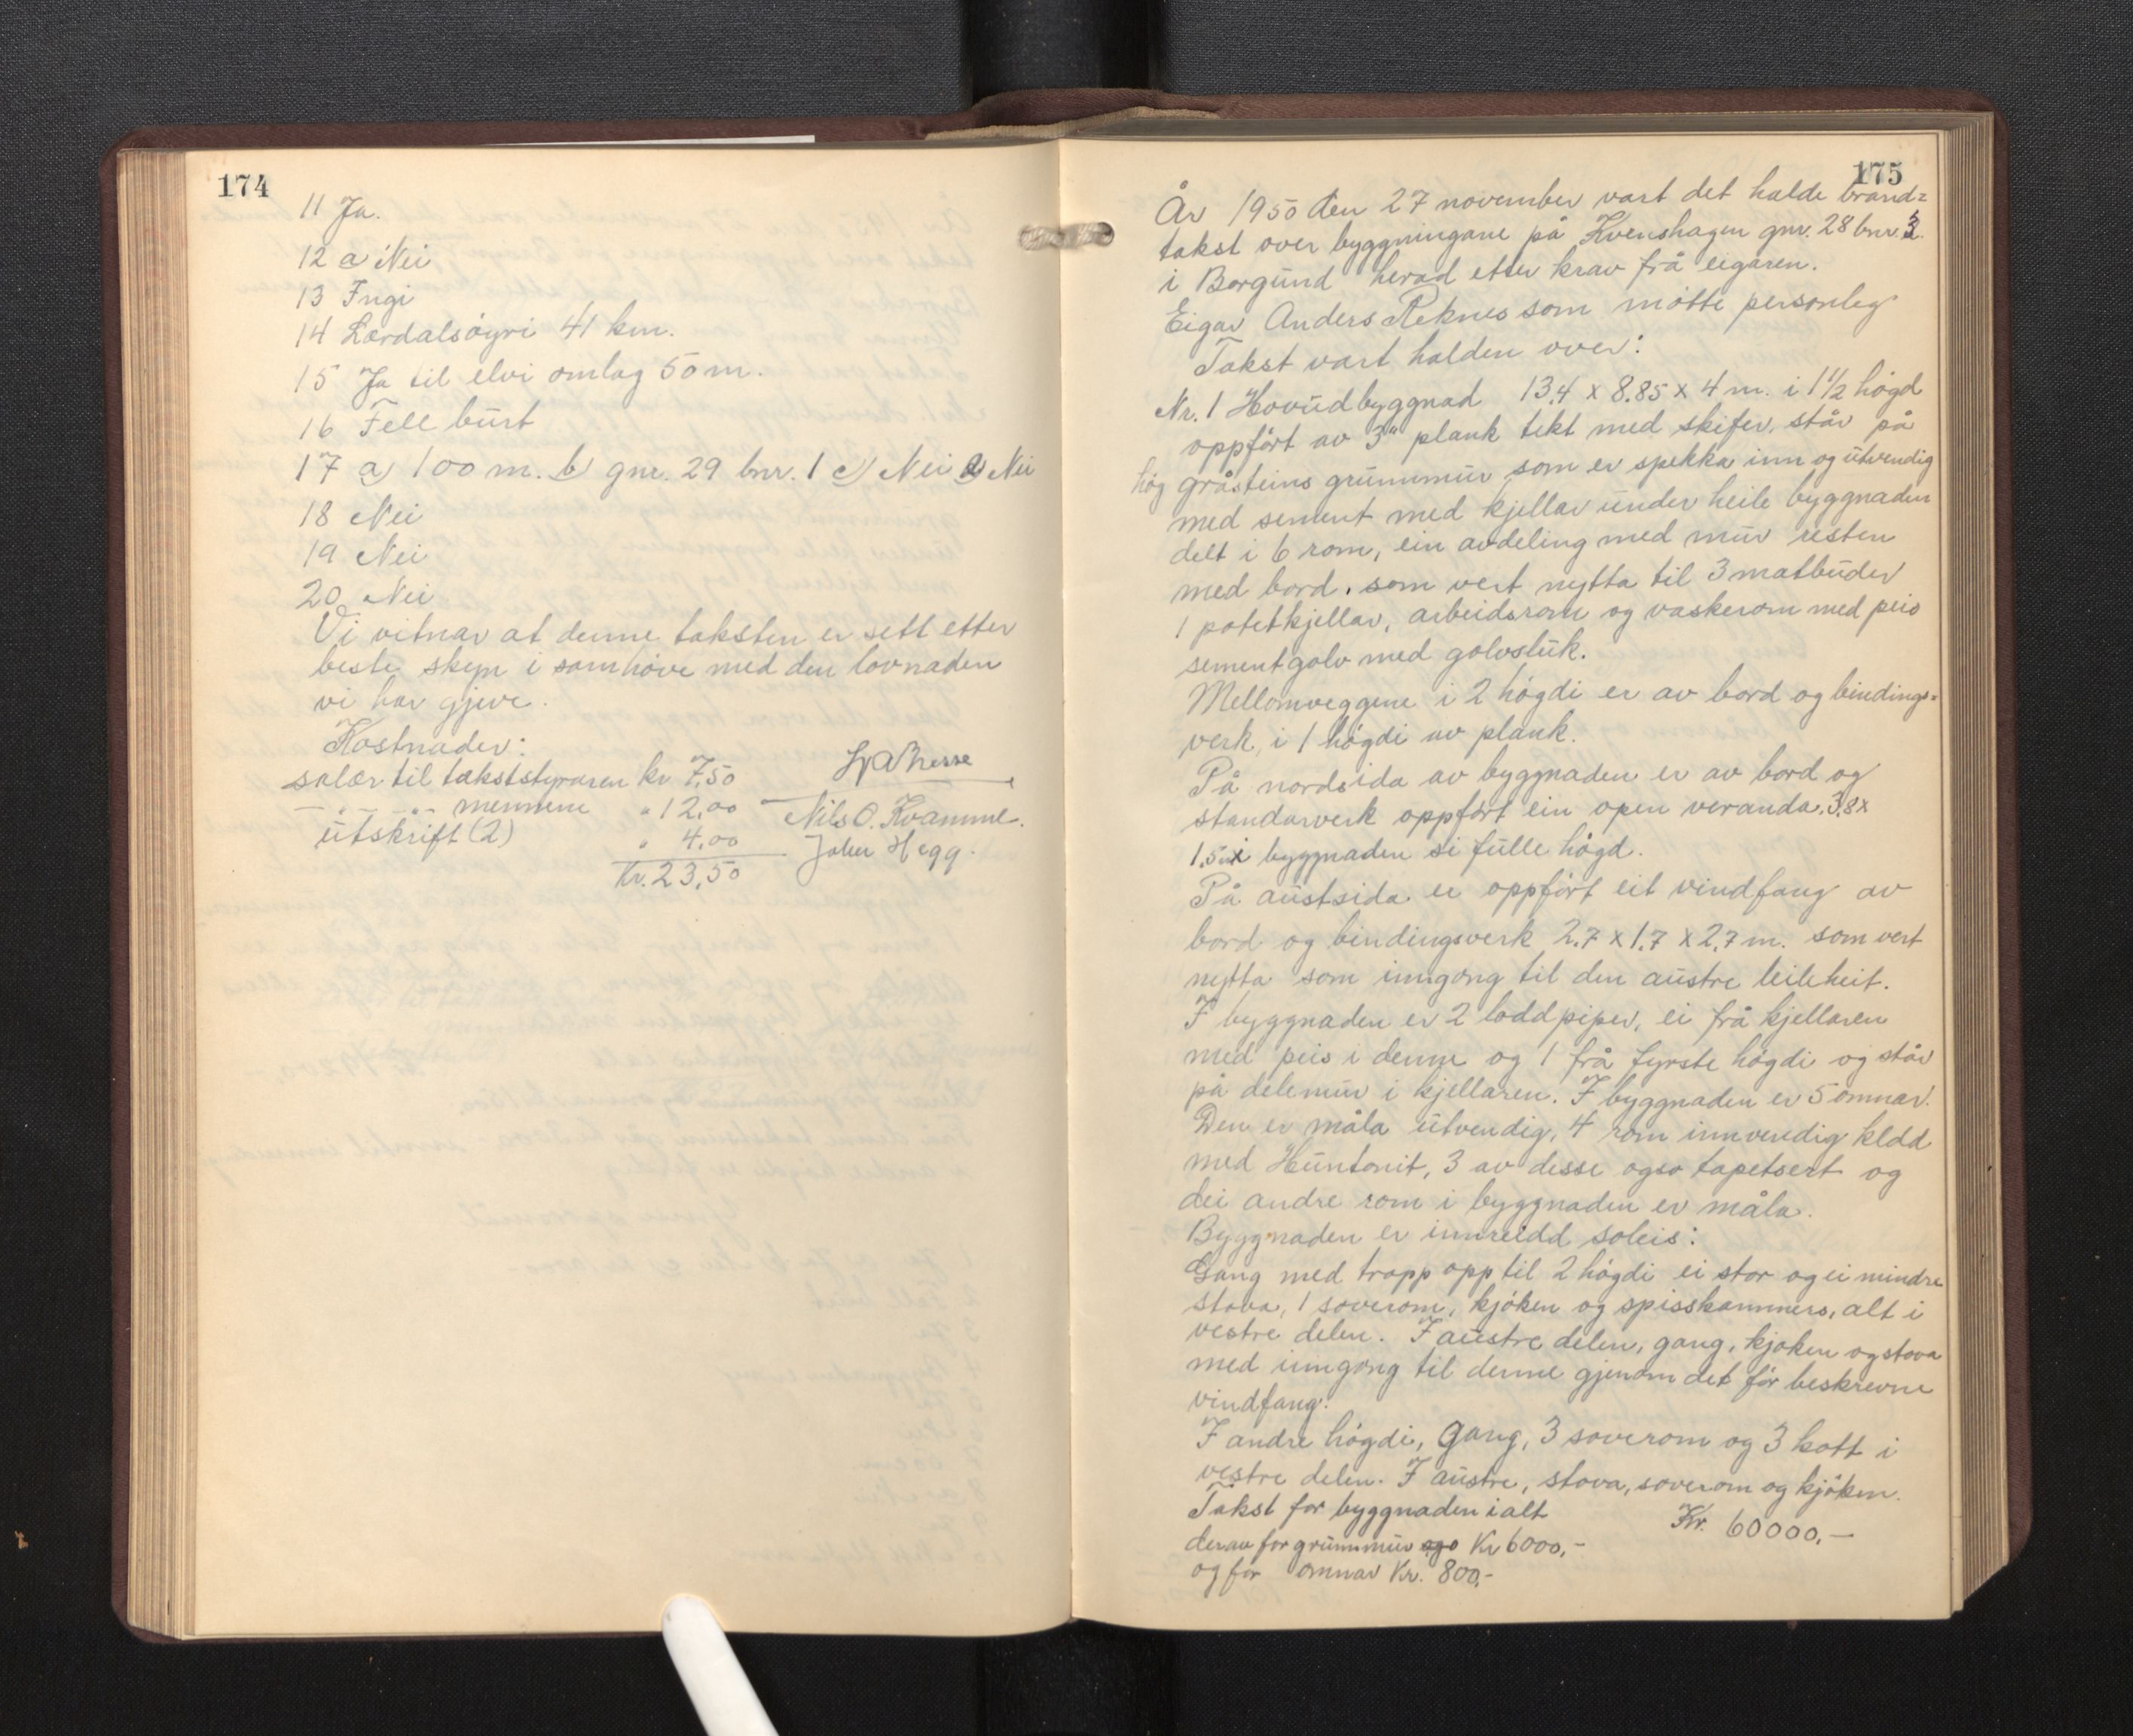 174
11 Ja.
12 a Nei
13 Ingi
14 Lærdalsøyri 41 km.
15 Ja til elvi omlag 50 m.
16 Fell burt
17 a) 100 m. b) gnr. 29 bnr. 1 c) Nei d) Nei
18 Nei
19 Nei
20 Nei
Vi vitnar at denne taksten er sett etter
beste skyn i samhøve med den lovnaden
vi har gjeve.
Kostnader:
salær til takststyraren kr 7,50
— „ — „ mennene „ 12,00
utskrift (2) „ 4,00
Kr. 23,50
Nils O. Kvamme.
Joker Hegg.
175
År 1950 den 27 november vart det halde brand=
takst over byggningane på Kvenshagen gnr. 28 bnr. 3.
i Borgund herad etter krav frå eigaren.
Eigar Anders Reknes som møtte personleg
Takst vart halden over:
Nr. 1 Hovudbyggnad 13,4 x 8.85 x 4 m. i 1 1/2 høgd
oppført av 3" plank tekt med skifer, står på
høg gråsteins grunnmur som er spekka inn og utvendig
med sement med kjellar under heile byggnaden
delt i 6 rom, ein avdeling med mur resten
med bord. som vert nytta til 3 matbuder
1 potetkjellar, arbeidsrom og vaskerom med peis
sementgolv med golvsluk.
Mellomveggene i 2 høgdi er av bord og bindings=
verk, i 1 høgdi av plank.
På nordsida av byggnaden er av bord og
standarverk oppført ein open veranda. 3,8 x
1,5 m i byggnaden si fulle høgd.
På austsida er oppført eit vindfang av
bord og bindingsverk 2,7 x 1,7 x 2,7 m. som vert
nytta som inngong til den austre leileheit.
I byggnaden er 2 loddpiper, ei frå kjellaren
med peis i denne og 1 frå fyrste høgdi og står
på delemur i kjellaren. I byggnaden er 5 omnar.
Den er måla utvendig, 4 rom innvendig kldd
med Huntonit, 3 av desse ogso tapetsert og
dei andre rom i byggnaden er måla.
Byggnaden er innreidd soleis:
Gang med tropp opp til 2 høgdi ei stor og ei mindre
stova, 1 soverom, kjøken og spisskammers, alt i
vestre delen. I austre delen, gang, kjøken og stova
med inngong til denne gjenom det før beskrevne
vindfang.
I andre høgdi, gang, 3 soverom og 3 kott i
vestre delen. I austre, stova, soverom og kjøken.
Takst for byggnaden ialt Kr. 60000,—
derav for grunnmur ogo Kr 6000,-
og for omnar Kr. 800,-